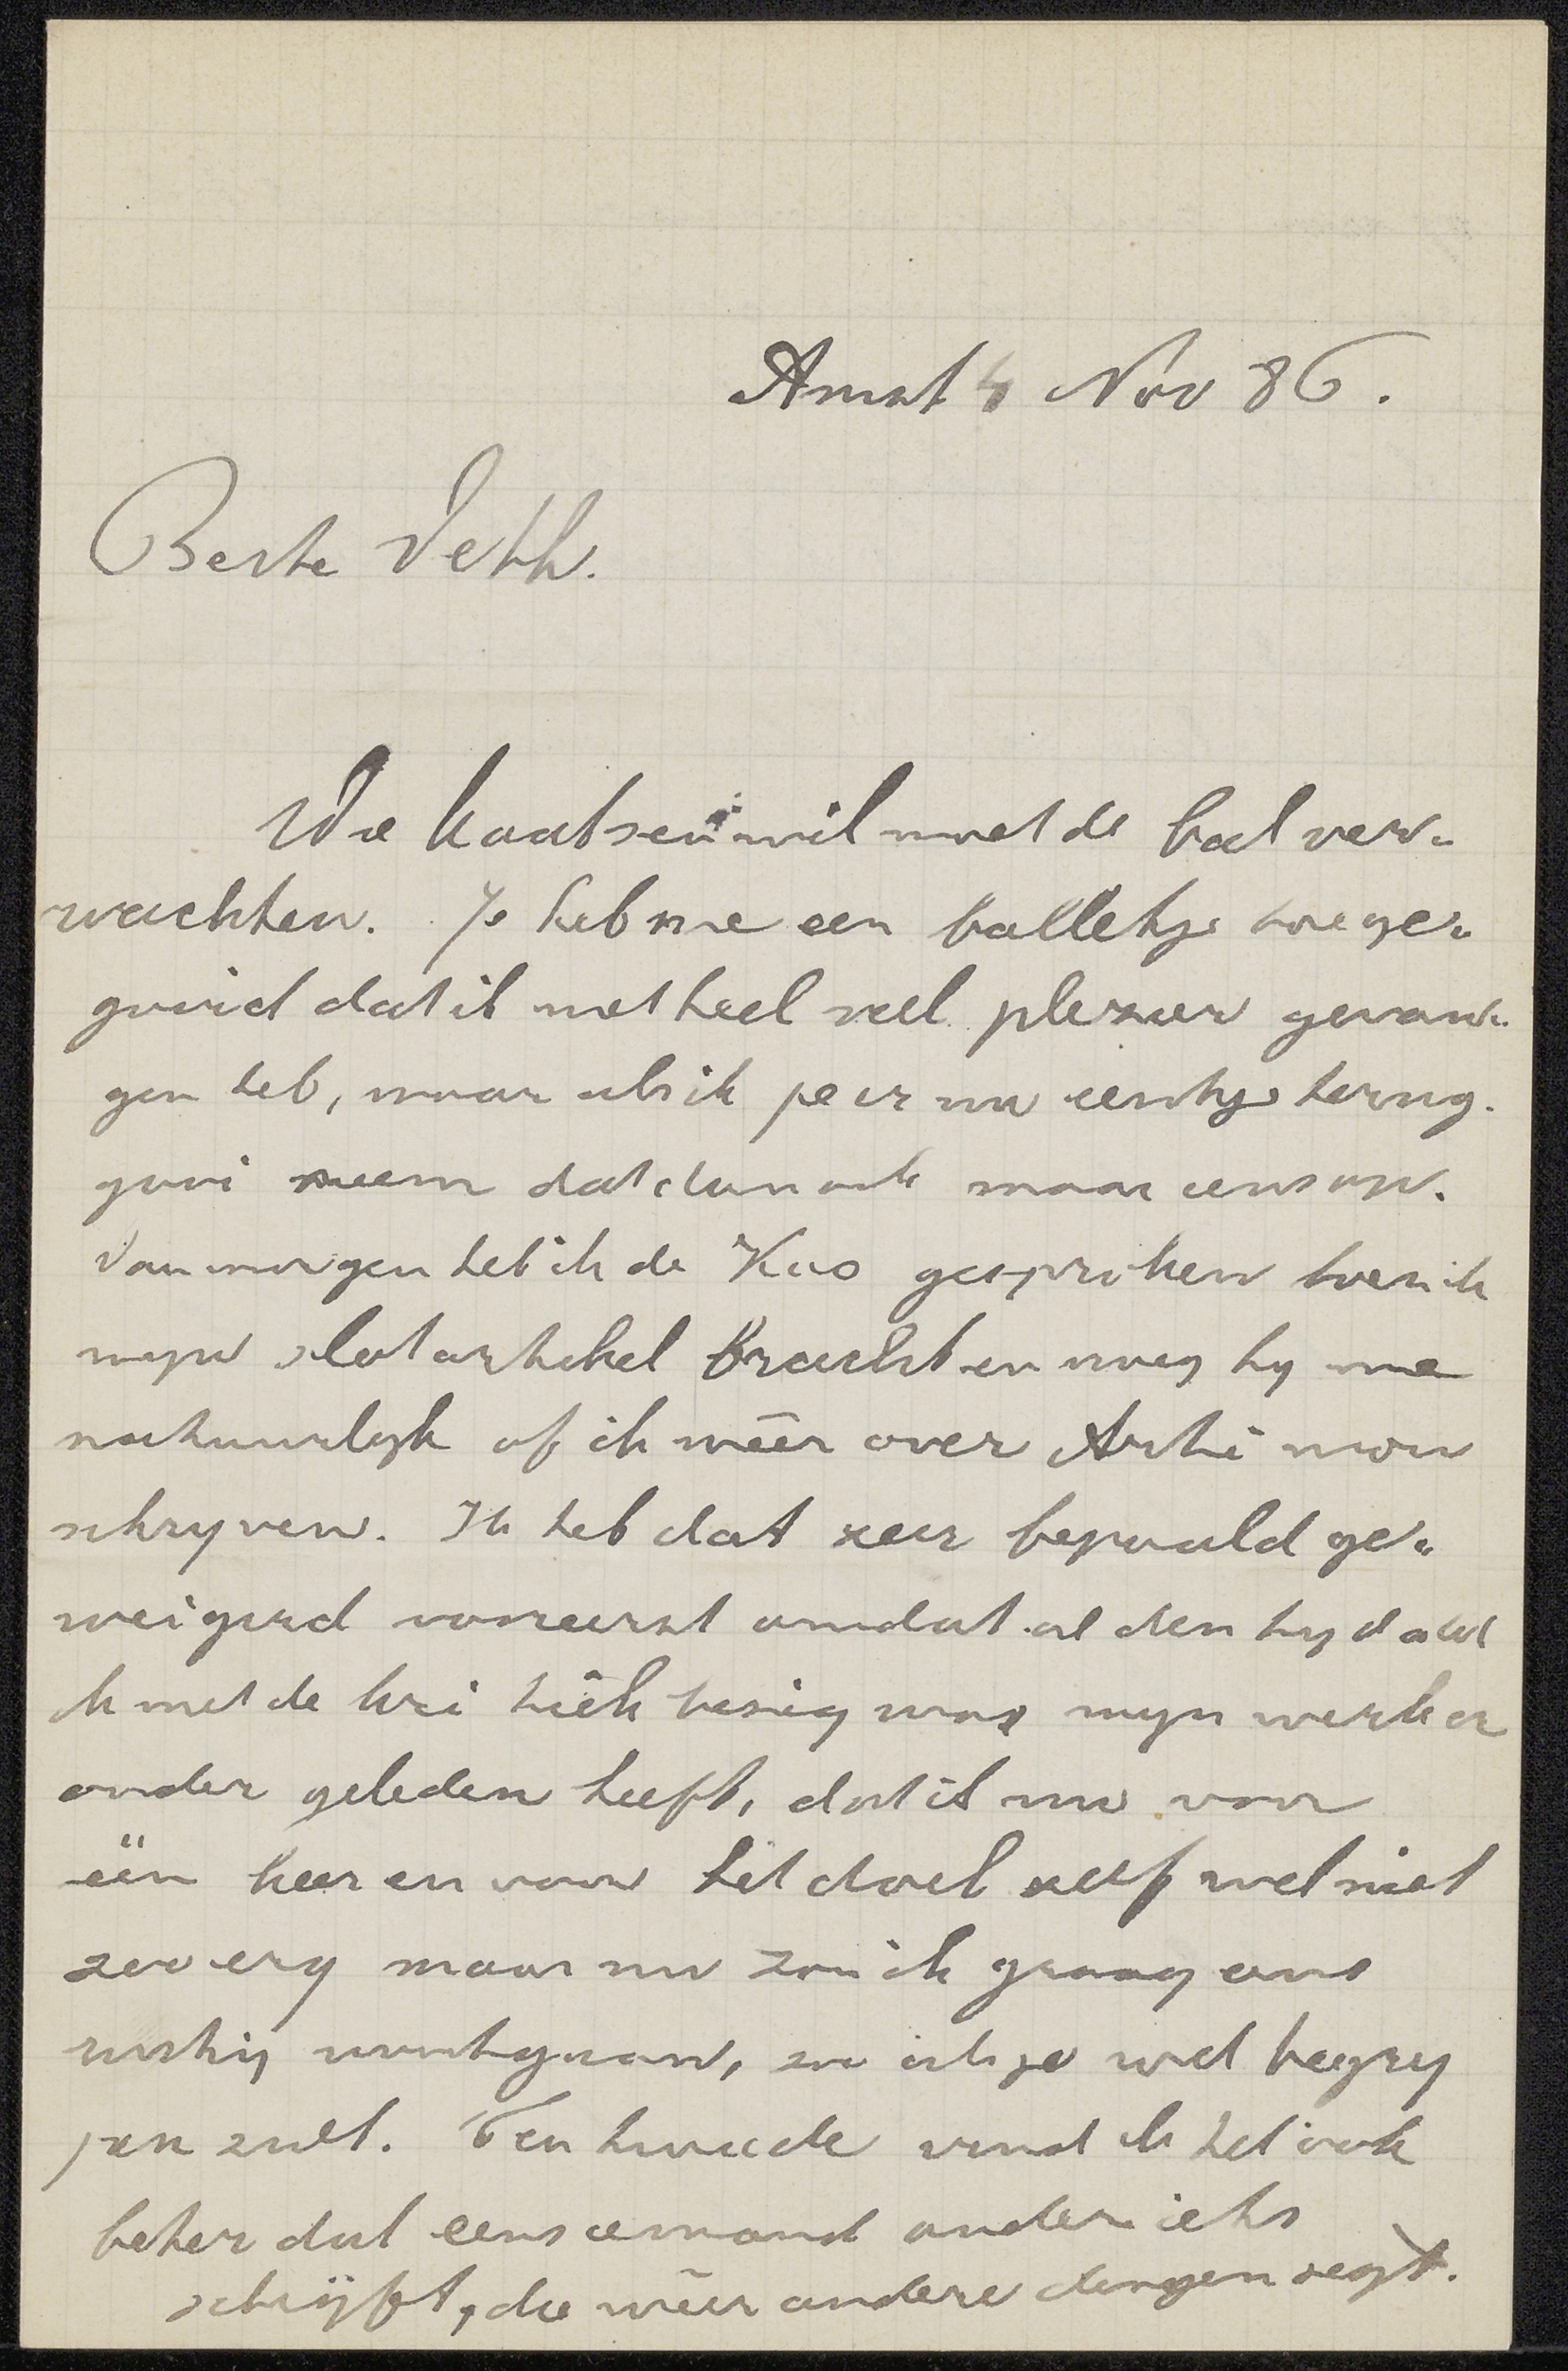 Amst 4 Nov 86.
Beste Veth.
Wie kaatsen wil moet de bal ver-
wachten. Je heb me een balletje toege-
gooid dat ik met heel veel plezier gevan-
gen heb, maar als ik je er nu eentje terug-
gooi neem dat dan ook maar eens op.
Van morgen heb ik de Koo gesproken toen ik
myn slotartikel bracht en vroeg hy me
natuurlyk of ik wéér over Arti wou
schryven. Ik heb dat zeer bepaald ge-
weigerd vooreerst omdat al den tyd dat
ik met de kritiek bezig was myn werk er
onder geleden heeft, dat is nu voor
één keer en voor het doel zelf wel niet
zoo erg maar nu zou ik graag eens
rustig voortgaan, zoo als je wel begry
pen zult. Ten tweede vind ik het ook
beter dat eens iemand anders iets
schrijft, die wéér andere dingen zegt.